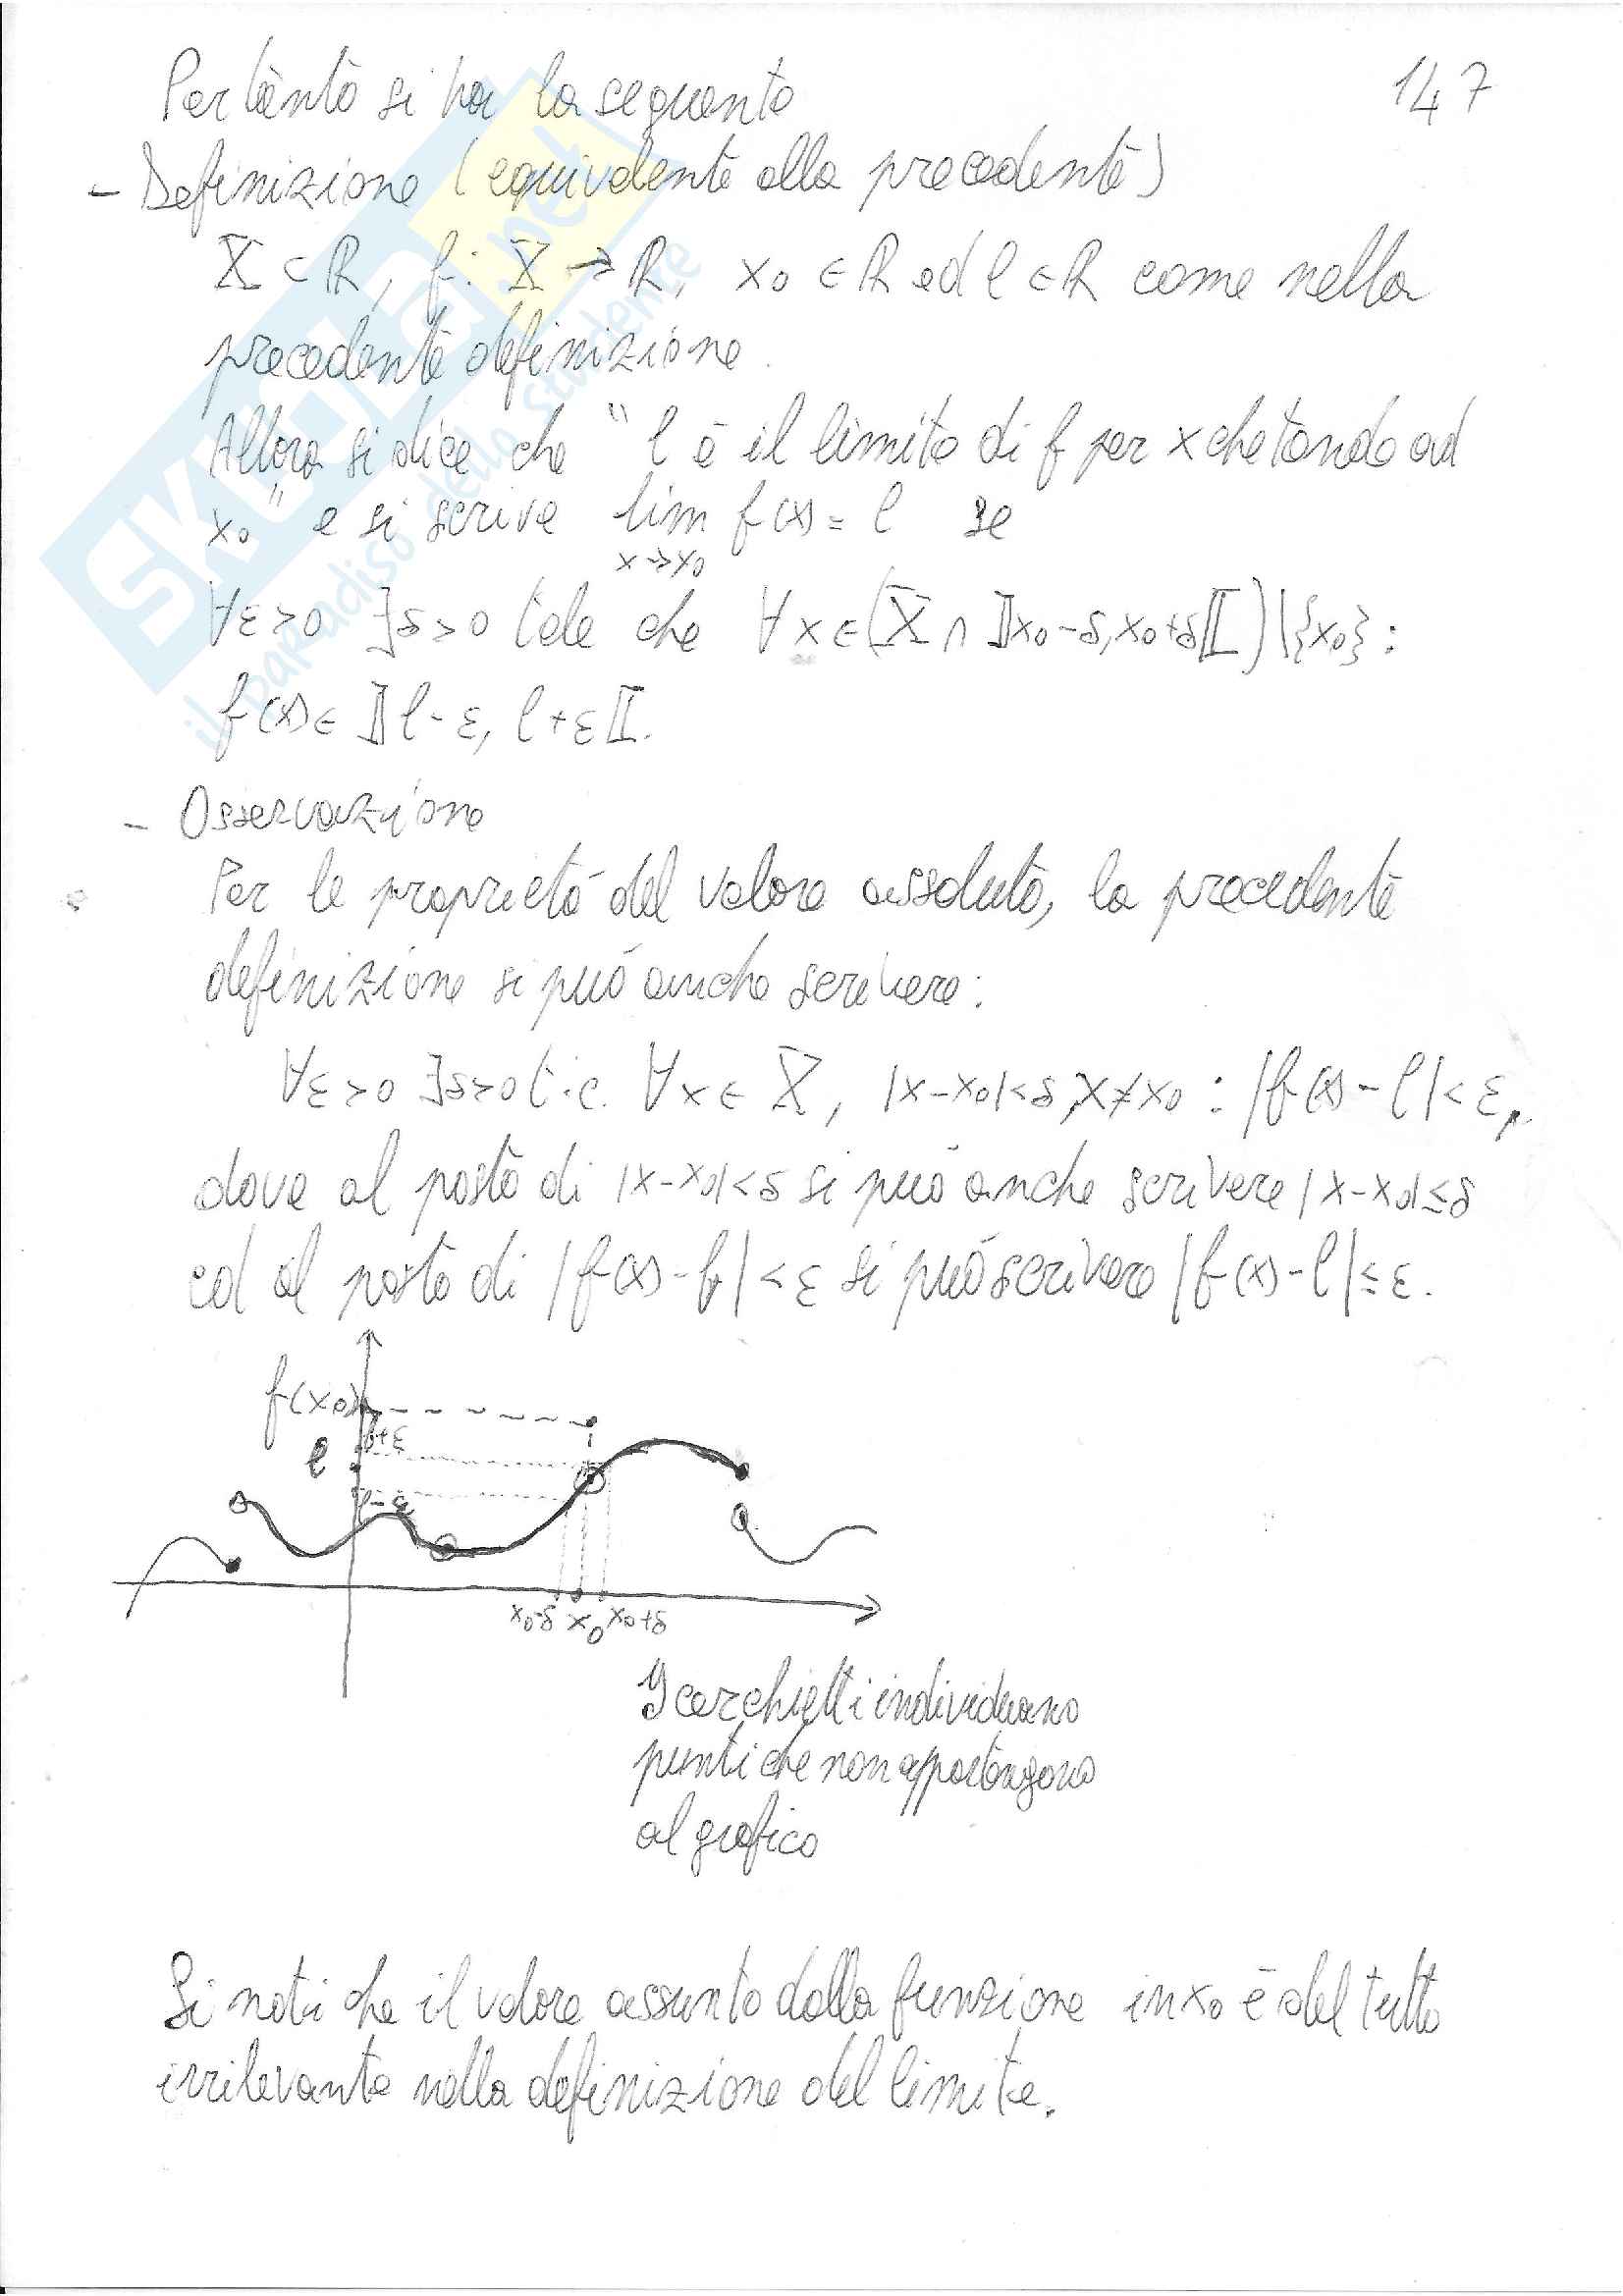 147
Pertanto si ha la seguente
- Definizione (equivalente alla precedente)
X ⊂ ℝ, f: X → ℝ, x₀ ∈ ℝ ed l ∈ ℝ come nella
precedente definizione.
Allora si dice che "l è il limite di f per x che tende ad
x₀" e si scrive lim f(x) = l se
x→x₀
∀ε>0 ∃δ>0 tale che ∀x∈(X ∩ ]x₀-δ, x₀+δ[)\{x₀}:
f(x) ∈ ]l-ε, l+ε[.
- Osservazione
Per le proprietà del valore assoluto, la precedente
definizione si può anche scrivere:
∀ε>0 ∃δ>0 t.c. ∀x∈X, |x-x₀|<δ, x≠x₀ : |f(x)-l|<ε,
dove al posto di |x-x₀|<δ si può anche scrivere |x-x₀|≤δ
ed al posto di |f(x)-l|<ε si può scrivere |f(x)-l|≤ε.
f(x₀)
l+ε
l
l-ε
x₀-δ x₀ x₀+δ
I cerchietti individuano
punti che non appartengono
al grafico
Si noti che il valore assunto dalla funzione in x₀ è del tutto
irrilevante nella definizione del limite.
SKUOLA.net
il paradiso dello studente